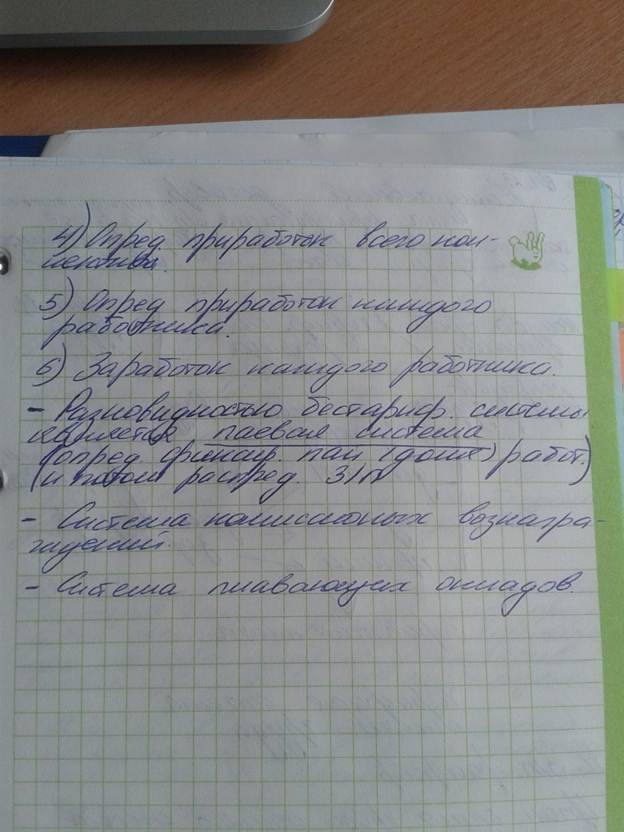 4) Опред приработок всего кол-
лектива.
5) Опред приработок каждого
работника.
6) Заработок каждого работника.
- Разновидностью бестариф. системы
является паевая система
(опред фиксир. паи (доли) работ.)
(и потом распред. З/п
- Система комиссионых вознагра-
ждений.
- Система плавающих окладов.